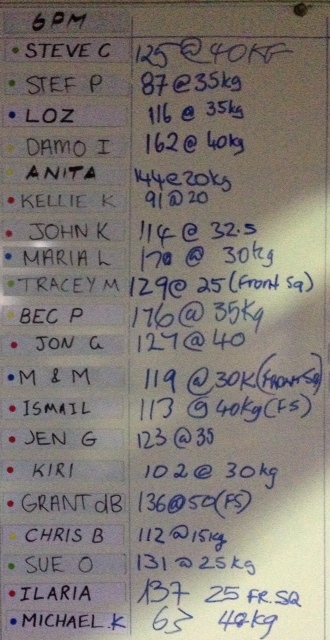 6PM
STEVE C 125 @ 40KG
STEF P 87 @ 35kg
LOZ 116 @ 35kg
DAMO I 162 @ 40kg
ANITA 144@20kg
KELLIE K 91 @ 20
JOHN K 114 @ 32.5
MARIA L @ 30kg
TRACEY M 129@ 25 (Front Sq)
BEC P 176 @ 35kg
JON G 127 @ 40
M & M 119 @ 30K (FRONT SQ)
ISMAIL 113 @ 40kg (FS)
JEN G 123 @ 35
KIRI 102 @ 30kg
GRANT dB 136@50 (FS)
CHRIS B 112 @ 15kg
SUE O 131 @ 25kg
ILARIA 137 25 FR.SQ
MICHAEL.K 63 40kg